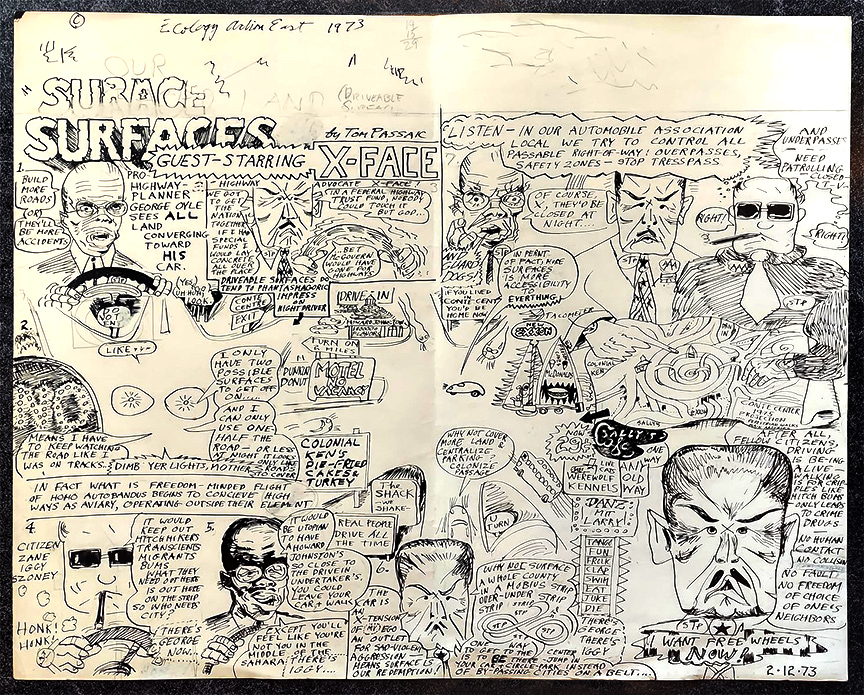 ©
Ecology Action East 1973
OUR
SURACE
LAND
(DRIVEABLE
SURFACES
by TOM PASSAK
GUEST-STARRING
X-FACE
1.
BUILD
MORE
ROADS
(OR)
THEY'LL
BE MORE
ACCIDENTS
PRO-
HIGHWAY-
PLANNER
GEORGE OYLE
SEES ALL
LAND
CONVERGING
TOWARD
HIS
CAR.
(YES)
UH HUH
LOOK
-HIGHWAY
ADVOCATE X-FACE!
WE GOT
TO GET
THIS
NATION
TOGETHER
IF I HAD
SPECIAL
FUNDS I
WOULD LAY
CONCRETE
ALL OVER
THE PLACE
(IN A FEDERAL HIGHWAY
TRUST FUND, NOBODY
COULD TOUCH IT
BUT GOD...
..BET
McGOVERN
WOULD HAVE
GONE FOR
HIGHWAYS
DRIVEABLE SURFACES
TEND TO PHANTASMAGORIC
IMPRESS
ON
NIGHT DRIVER
CONTI
CENT
EXIT
DRIVE-IN
DO
NOT
ENT
2.
LIKE
I ONLY
HAVE TWO
POSSIBLE
SURFACES
TO GET OFF
ON....
AND I
CAN ONLY
USE ONE-
HALF THE
ROAD - OR LESS
AT NIGHT
TURN ON
2 MILES
DUNKIN
DONUT
MOTEL
NO
VACANCY
COLONIAL
KEN'S
DIE-FRIED
CAKES
TURKEY
MEANS I HAVE
TO KEEP WATCHING
THE ROAD LIKE I
WAS ON TRACKS.
DIMB YER LIGHTS, MOTHER
IN FACT WHAT IS FREEDOM-MINDED FLIGHT
OF HOMO AUTOBANDUS BEGINS TO CONCIEVE HIGH
WAYS AS AVIARY, OPERATING OUTSIDE THEIR ELEMENT
THE
SHACK
-WE
SHAKE-
REAL PEOPLE
DRIVE ALL
THE TIME
4.
CITIZEN
ZANE
IGGY
SZONEY
HONK!
HINK!
IT WOULD
KEEP OUT
HITCHIKERS
TRANSIENTS
MIGRANTS
BUMS
WHAT THEY
NEED OUT HERE
IS OUT HERE
ON THE STRIP
SO WHO NEEDS
CITY?
THERE'S
GEORGE
NOW...
5.
IT WOULD
BE UTOPIAN
TO HAVE
A HOWARD
JOHNSTON'S
SO CLOSE TO
THE DRIVE IN
UNDERTAKER'S.
YOU COULD
LEAVE YOUR
CAR & WALK
EXCEPT YOU'LL
FEEL LIKE YOU'RE
NOT YOU IN THE
MIDDLE OF THE
SAHARA! THERE'S
IGGY....
6.
THE
CAR IS
AN
X-TENSION
OF MY EGO
AN OUTLET
FOR SAD-VIOLENT
AGGRESSION -
MEANS SURFACE IS
OUR REDEMPTION.
LISTEN - IN OUR AUTOMOBILE ASSOCIATION
LOCAL WE TRY TO CONTROL ALL
PASSABLE RIGHT-OF-WAY! OVERPASSES,
SAFETY ZONES - STOP TRESSPASS
AND
UNDERPASSES
NEED
PATROLLING
OF COURSE,
THEY'D BE
CLOSED AT
NIGHT....
RIGHT!
RIGHT!
IN PERNT
OF FACT, MORE
SURFACES
IS MORE
ACCESSIBILITY
TO
EVERYTHING
IF YOU LIVED
IN
CONTI-CENT
YOU'D BE
HOME NOW
TACOMELER
COLONIAL
VIEW
McDONALD
WHY NOT COVER
MORE LAND &
CENTRALIZE
TRAFFIC?
COLONIZE
PASSAGE
SALLES
ONE
WAY
WE LIVE
WEREWOLF
KENNELS
ANY
OLD
WAY
DANZ
LARRY!
TANG
FUN
FROLK
LAF
SWIM
EAT
SIT
DIE
THERE'S
GEORGE
THERE'S
IGGY!
TURN
WHY NOT SURFACE
A WHOLE COUNTY
IN A MOBIUS STRIP
OVER-UNDER STRIP
STRIP STRIP
ONE WAY
TO GET TO THE CENTER
IS TO BE THERE JUMP IN
YOUR CAR & CIRCLE MARK INSTEAD
OF BY-PASSING CITIES ON A BELT....
AFTER ALL,
FELLOW CITIZENS,
DRIVING
IS BEING
ALIVE -
WALKING
IS FOR CRIP-
PLES LIKE
HITCH BUMS
ONLY LEADS
TO CRIME
DRUGS.
NO HUMAN
CONTACT
NO COLLISION
NO FAULT
NO FREEDOM
OF CHOICE
OF ONE'S
NEIGHBORS
STP
I WANT FREE WHEELS
NOW!
2·12·73